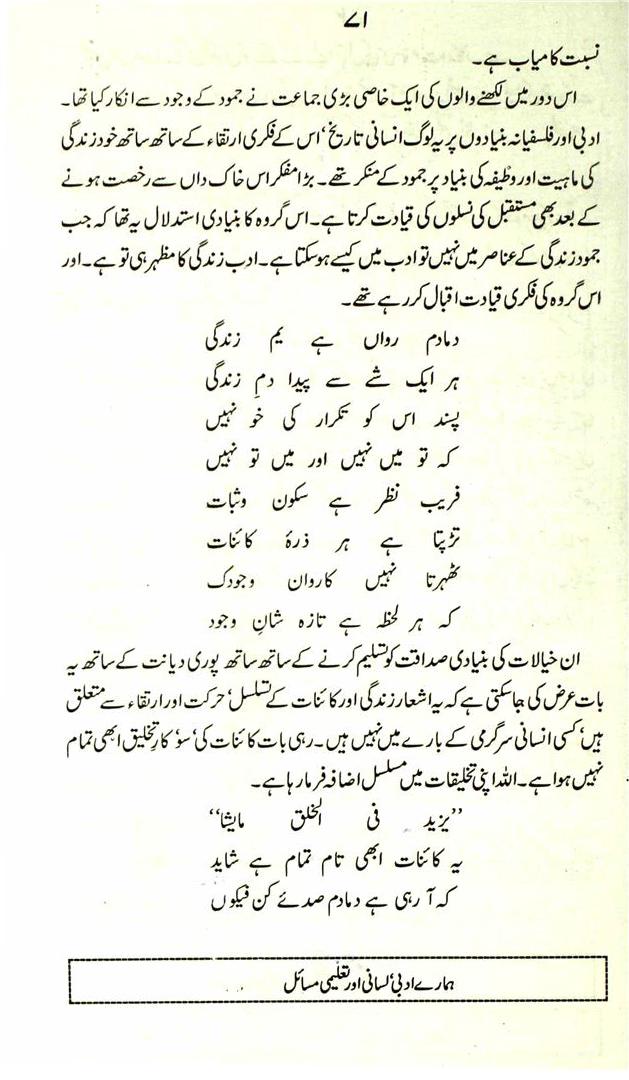 ۷۱
نسبت کامیاب ہے۔
اس دور میں لکھنے والوں کی ایک خاصی بڑی جماعت نے جمود کے وجود سے انکار کیا تھا۔
ادبی اور فلسفیانہ بنیادوں پر یہ لوگ انسانی تاریخ‘ اس کے فکری ارتقاء کے ساتھ ساتھ خود زندگی
کی ماہیت اور وظیفہ کی بنیاد پر جمود کے منکر تھے۔ بڑا مفکر اس خاک داں سے رخصت ہونے
کے بعد بھی مستقبل کی نسلوں کی قیادت کرتا ہے۔ اس گروہ کا بنیادی استدلال یہ تھا کہ جب
جمود زندگی کے عناصر میں نہیں تو ادب میں کیسے ہو سکتا ہے۔ ادب زندگی کا مظہر ہی تو ہے۔ اور
اس گروہ کی فکری قیادت اقبال کر رہے تھے۔
دمادم رواں ہے یم زندگی
ہر ایک شے سے پیدا دمِ زندگی
پسند اس کو تکرار کی خو نہیں
کہ تو میں نہیں اور میں تو نہیں
فریب نظر ہے سکون وثبات
تڑپتا ہے ہر ذرۂ کائنات
ٹھہرتا نہیں کاروان وجودک
کہ ہر لحظہ ہے تازہ شانِ وجود
ان خیالات کی بنیادی صداقت کو تسلیم کرنے کے ساتھ ساتھ پوری دیانت کے ساتھ یہ
بات عرض کی جا سکتی ہے کہ یہ اشعار زندگی اور کائنات کے تسلسل‘ حرکت اور ارتقاء سے متعلق
ہیں‘ کسی انسانی سرگرمی کے بارے میں نہیں ہیں۔ رہی بات کائنات کی‘ سو‘ کارِ تخلیق ابھی تمام
نہیں ہوا ہے۔ اللہ اپنی تخلیقات میں مسلسل اضافہ فرما رہا ہے۔
’’یزید فی الخلق مایشا‘‘
یہ کائنات ابھی تام تمام ہے شاید
کہ آ رہی ہے دمادم صدئے کن فیکوں
ہمارے ادبی‘ لسانی اور تعلیمی مسائل